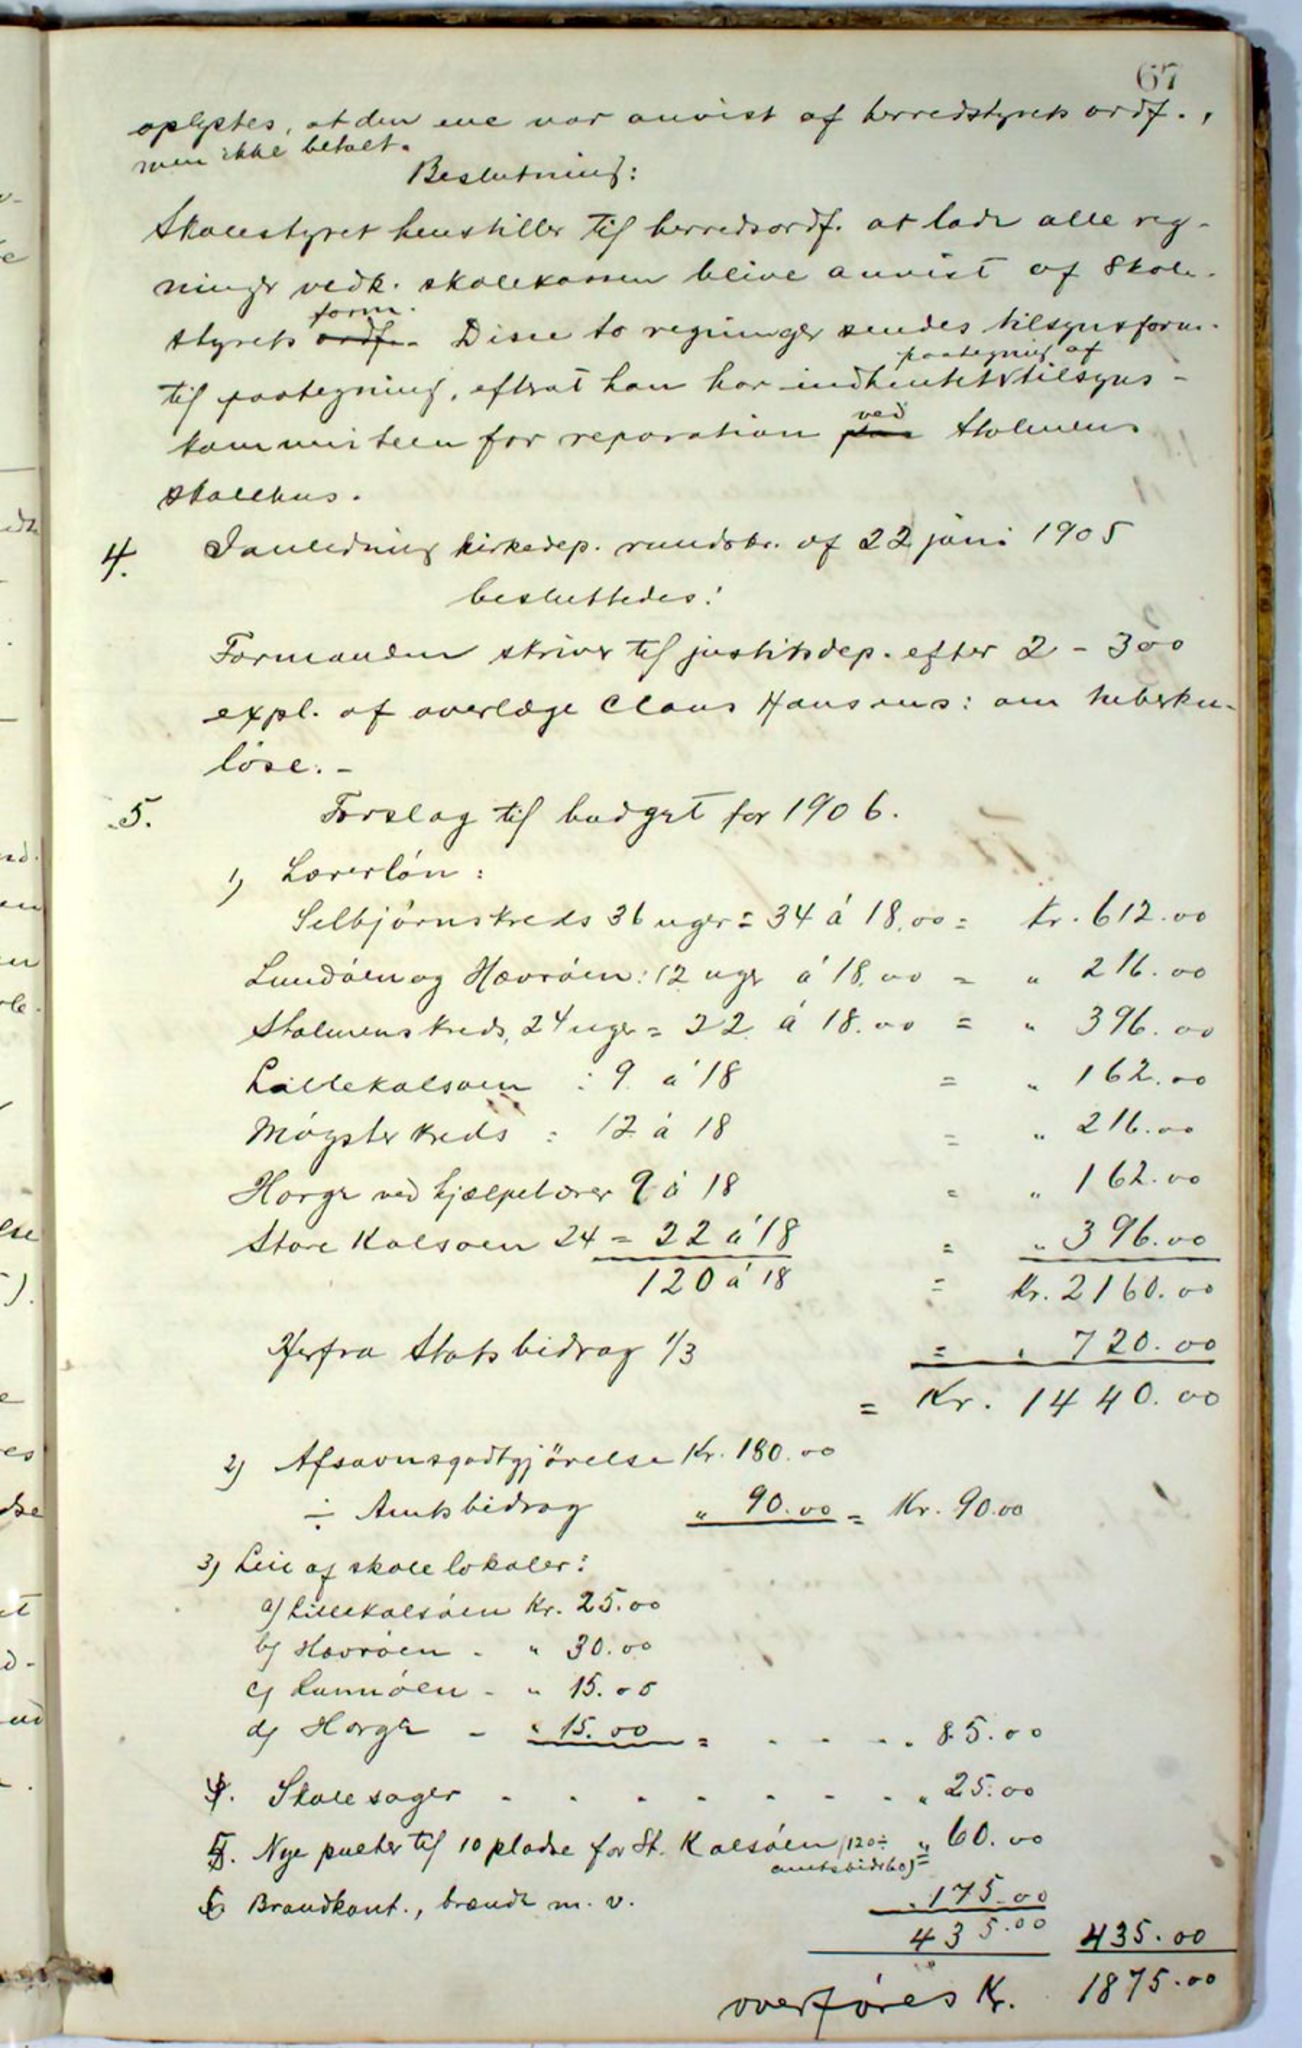 67
oplystes, at den ene var anvist af herredstyrets ordf.,
men ikke betalt.
Beslutning:
Skolestyret henstiller til herredsordf. at lade alle reg-
ninger vedk. skolekassen blive anvist af skole-
styrets ordf. form. Disse to regninger sendes tilsynsform.
til paategning, efterat han har indhentet paategning af tilsyns-
kommisteen for reparation paa ved Stolmens
skolehus.
4. I anledning kirkedep. rundskr. af 22 juni 1905
besluttedes:
Formanden skriver til justitsdep. efter 2 - 300
expl. af overlæge Claus Hansens: om tuberku-
løse. -
5. Forslag til budget for 1906.
1) Lærerløn:
Selbjørnskreds 36 uger = 34 á 18.00 = Kr. 612.00
Lundøen og Hævrøen: 12 uger á 18.00 = " 216.00
Stolmenskreds, 24 uger = 22 á 18.00 = " 396.00
Lillekalsøen : 9 á 18 = " 162.00
Møgster kreds : 12 á 18 = " 216.00
Horge ved hjælpelærer 9 á 18 = " 162.00
Store Kalsøen 24 = 22 á 18 = " 396.00
120 á 18 = Kr. 2160.00
Herfra Statsbidrag 1/3 = " 720.00
= Kr. 1440.00
2) Afsavnsgodtgjörelse Kr. 180.00
÷ Amtsbidrag " 90.00 = Kr. 90.00
3) Leie af skolelokaler:
a) Lillekalsøen Kr. 25.00
b) Hævrøen - " 30.00
c) Lunnøen - " 15.00
d) Horge - " 15.00 = . . . . 85.00
4. Skolesager - . . . . . . " 25.00
5. Nye pulter til 10 pladse for St. Kalsøen (120 ÷ " 60.00
amtsbidr. 60) =
6 Brandkont., brænde m. v. " 175.00
435.00 435.00
overføres Kr. 1875.00